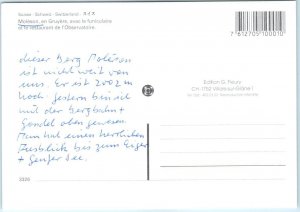 Suisse - Schweiz - Switzerland - スイス
Moléson, en Gruyère, avec le funiculaire
et le restaurant de l'Observatoire.
7 612705 100010
dieser Berg Moléson
ist nicht weit von
uns. Er ist 2002 m
hoch gestern bin ich
mit der Bergbahn +
Gondel oben gewesen
Man hat einen herrlichen
Ausblick bis zum Eiger
+ Genfer See.
Edition G. Fleury
CH-1752 Villars-sur-Glâne 1
3326